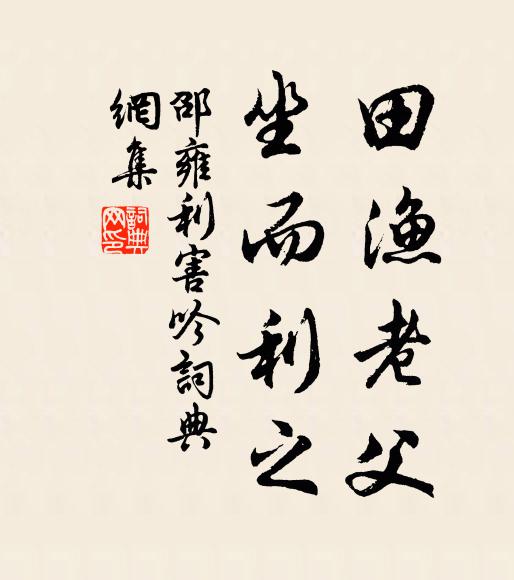 田漁老父
坐而利之
邵雍利害吟詞典
網集
詞典
网印